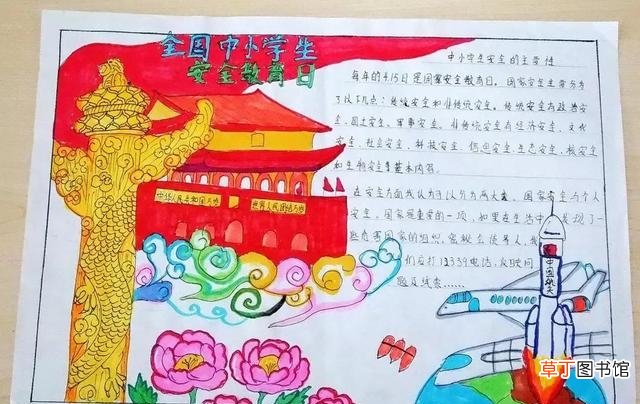 全国中小学生
安全教育日
中小学生安全的主要性
每年的4.15日是国家安全教育日。国家安全主要分为
了以下几点：传统安全和非传统安全。传统安全有政治安
全、国土安全、军事安全。非传统安全有经济安全、文化
安全、社会安全、科技安全、信息安全、生态安全、核安全
和生物安全等基本内容。
在安全方面我认为可以分为两大类，国家安全与个人
安全。国家最重要的一项，如果在生活中发现了一
些危害国家的组织，
们应打12339电话，反映问
题及线索……
中华人民共和国万岁
世界人民团结万岁
中国航天
草丁图书馆